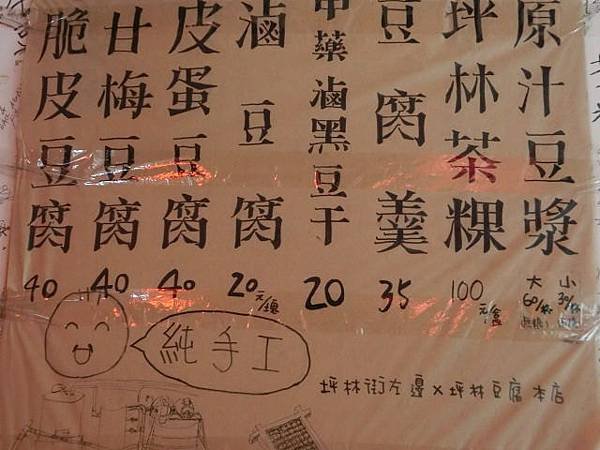 原汁豆漿
坪林茶粿
豆腐羹
中藥滷黑豆干
滷豆腐
皮蛋豆腐
甘梅豆腐
脆皮豆腐
40
40
40
20元/塊
20
35
100元/盒
大 小
60/杯 30/杯
純手工
坪林街左邊×坪林豆腐本店